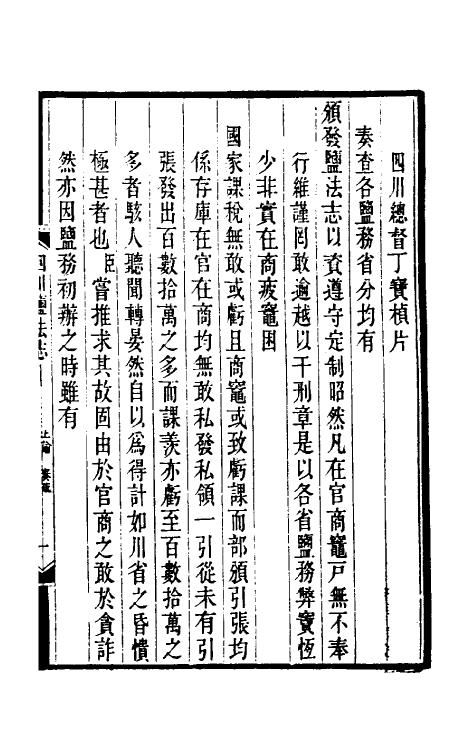 四川總督丁寶楨片
奏查各鹽務省分均有
頒發鹽法志以資遵守定制昭然凡在官商竈戸無不奉
行維謹罔敢逾越以干刑章是以各省鹽務弊竇恆
少非實在商疲竈困
國家課稅無敢或虧且商竈或致虧課而部頒引張均
係存庫在官在商均無敢私發私領一引從未有引
張發出百數拾萬之多而課羨亦虧至百數拾萬之
多者駭人聽聞轉晏然自以爲得計如川省之昏憒
極甚者也臣嘗推求其故固由於官商之敢於貪詐
然亦因鹽務初辦之時雖有
四川鹽法志
上諭 奏疏
一